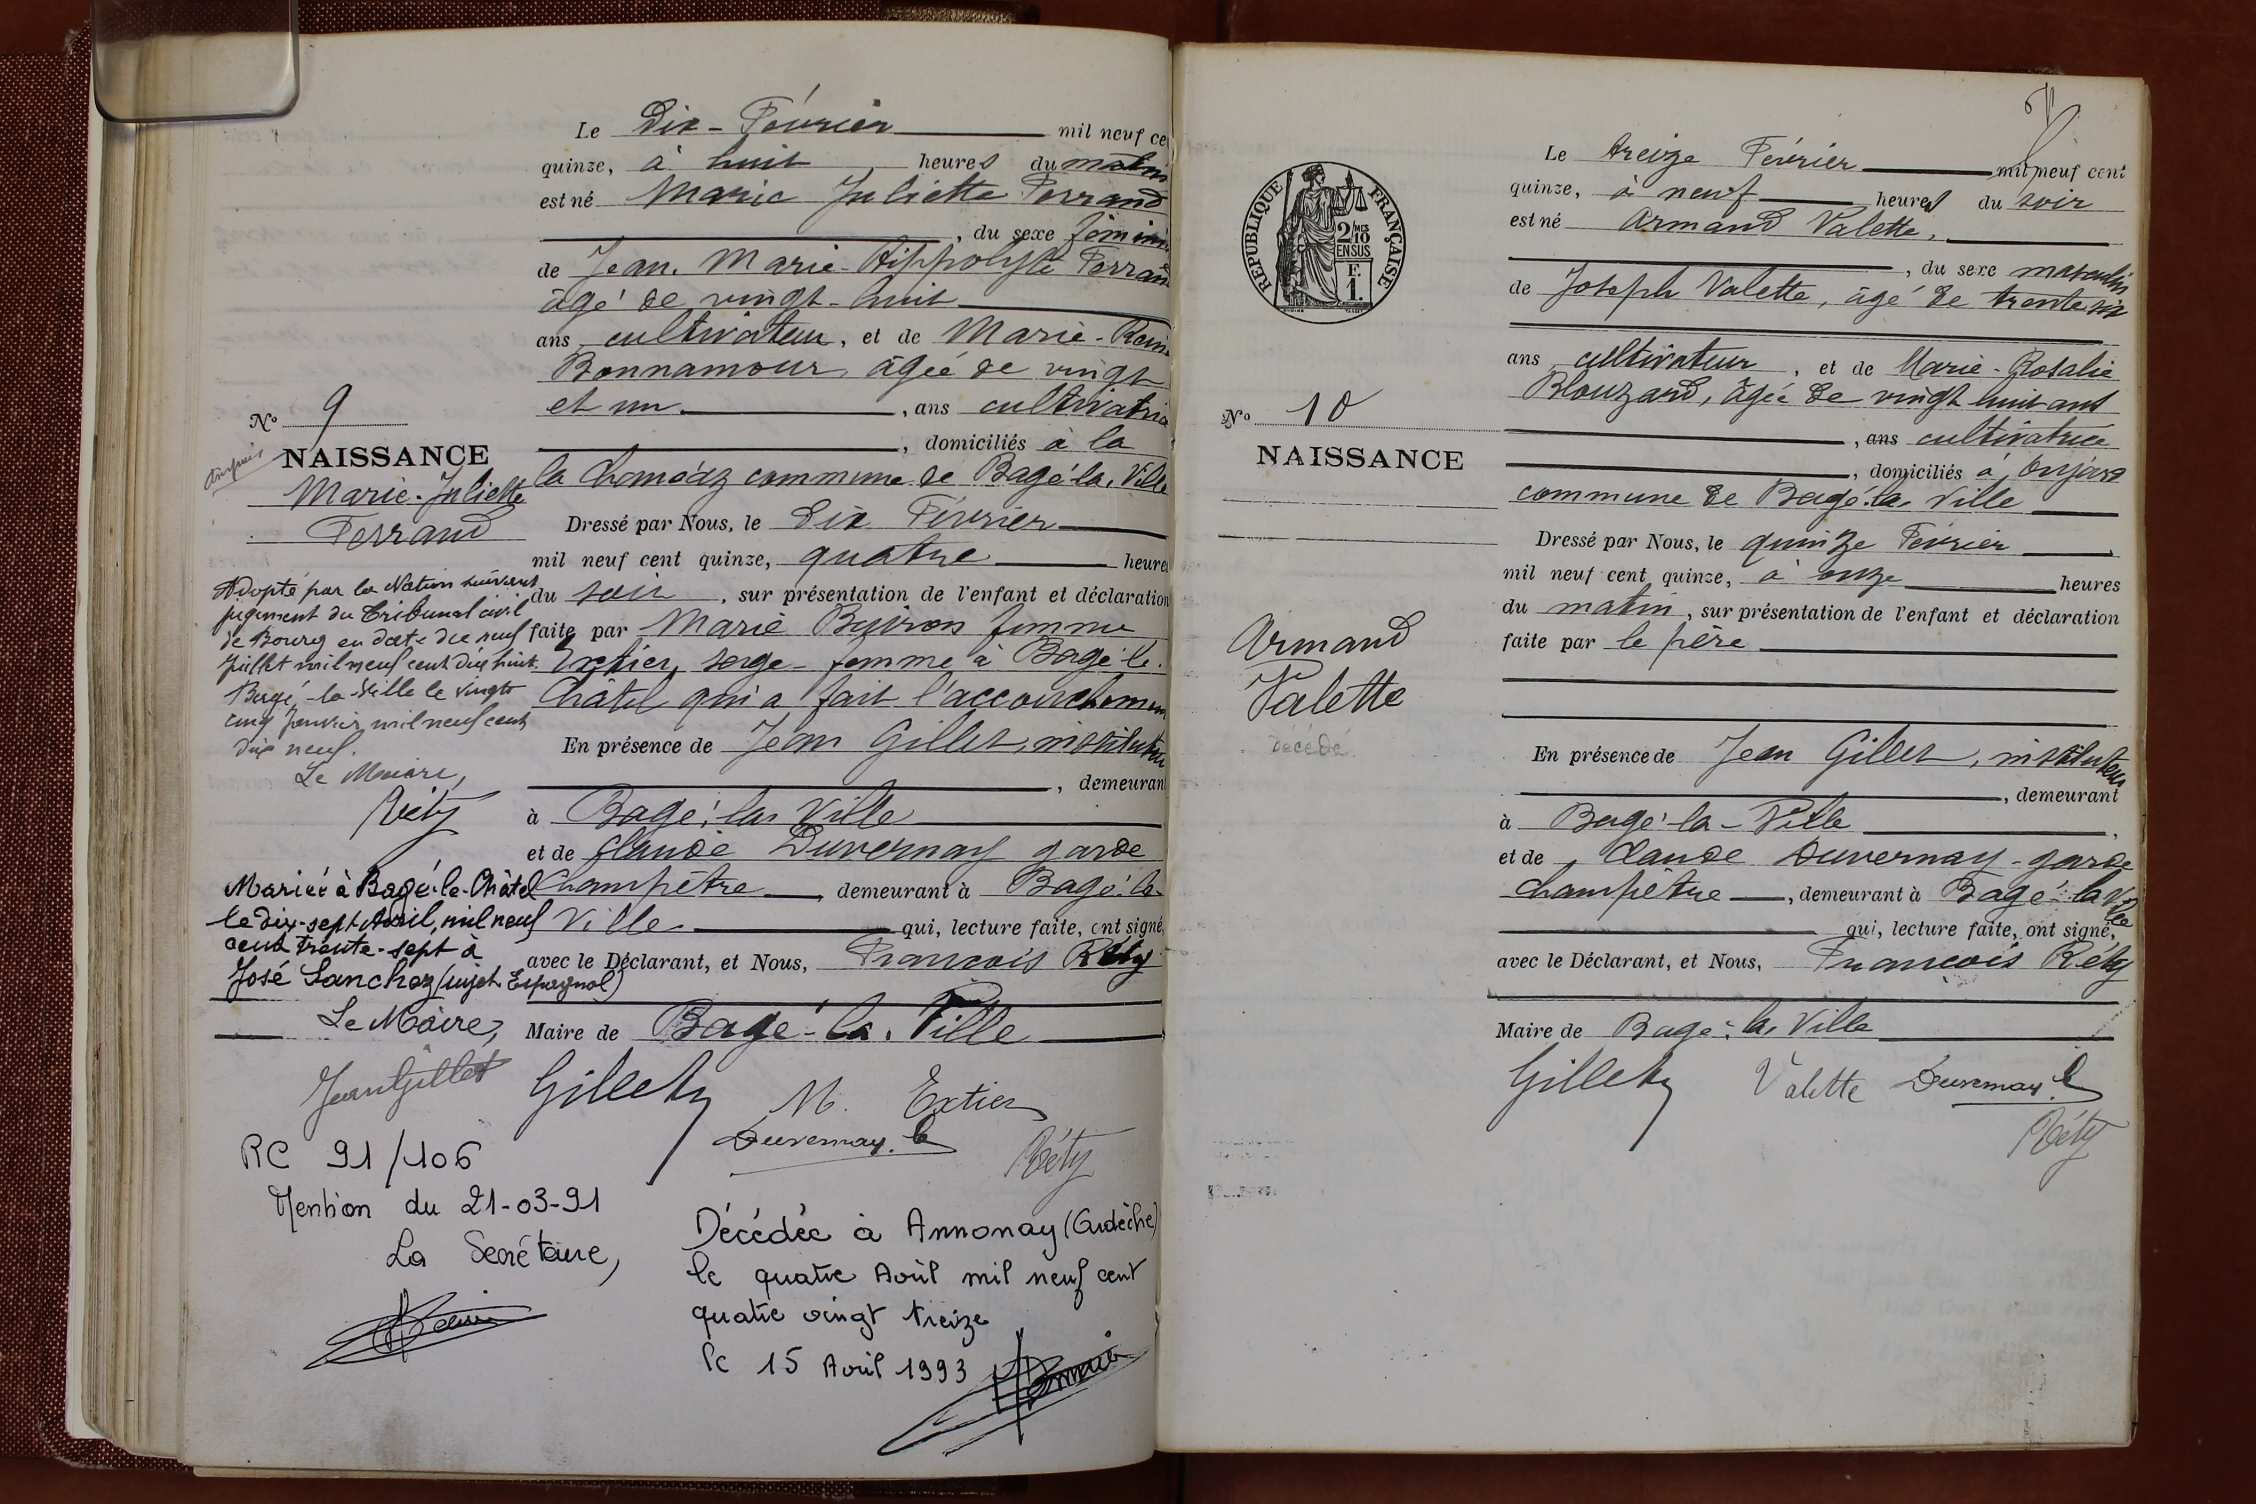 Le Dix-Février mil neuf ce
quinze, à huit heures du matin
est né Marie Juliette Ferrand
, du sexe féminin
de Jean. Marie-Hippolyte Ferrand
âgé de vingt-huit
ans cultivateur, et de Marie-
Bonnamour, âgée de vingt
et un , ans cultivatrice
, domiciliés à la
la commune de Bagé-la-Ville
Dressé par Nous, le Dix Février
mil neuf cent quinze, quatre heures
du soir , sur présentation de l'enfant et déclaration
faite par Marie Buiron femme
Extier, sage-femme à Bagé-le-
Châtel qui a fait l'accouchement
En présence de Jean Gillet, instituteur
, demeurant
à Bagé-la-Ville
et de Claude Duvernay garde
Champêtre , demeurant à Bagé-la-
Ville qui, lecture faite, ont signé
avec le Déclarant, et Nous, François Réty
Maire de Bagé-la-Ville
Gillet M. Extier
Duvernay. C
Réty
No 9
NAISSANCE
Marie-Juliette
Ferrand
Adopté par la Nation suivant
jugement du Tribunal civil
de Bourg en date du neuf
Juillet mil neuf cent dix huit.
Bagé-la-Ville le vingt
cinq Janvier mil neuf cent
dix neuf.
Le Maire,
Réty
Mariée à Bagé-le-Châtel
le dix-sept Avril, mil neuf
cent trente-sept à
José Sanchez (sujet Espagnol)
Le Maire,
Jean Gillet
RC 91/106
Mention du 21-03-91
La Secrétaire,
Décédée à Annonay (Ardèche)
le quatre Avril mil neuf cent
quatre vingt treize
le 15 Avril 1993
REPUBLIQUE FRANÇAISE
2/10 MES
EN SUS
F.
1.
Le treize Février mil neuf cent
quinze, à neuf heures du soir
est né Armand Valette,
, du sexe masculin
de Joseph Valette, âgé de trente six
ans cultivateur , et de Marie-Rosalie
Blouzard, âgée de vingt huit ans
, ans cultivatrice
, domiciliés à
commune de Bagé-la-Ville
Dressé par Nous, le quinze Février
mil neuf cent quinze, à onze heures
du matin, sur présentation de l'enfant et déclaration
faite par le père
En présence de Jean Gillet, instituteur
, demeurant
à Bagé-la-Ville
et de Claude Duvernay-garde
Champêtre , demeurant à Bagé-la-Ville
qui, lecture faite, ont signé,
avec le Déclarant, et Nous, François Réty
Maire de Bagé-la-Ville
Gillet Valette Duvernay. C
Réty
No 10
NAISSANCE
Armand
Valette
Décédé